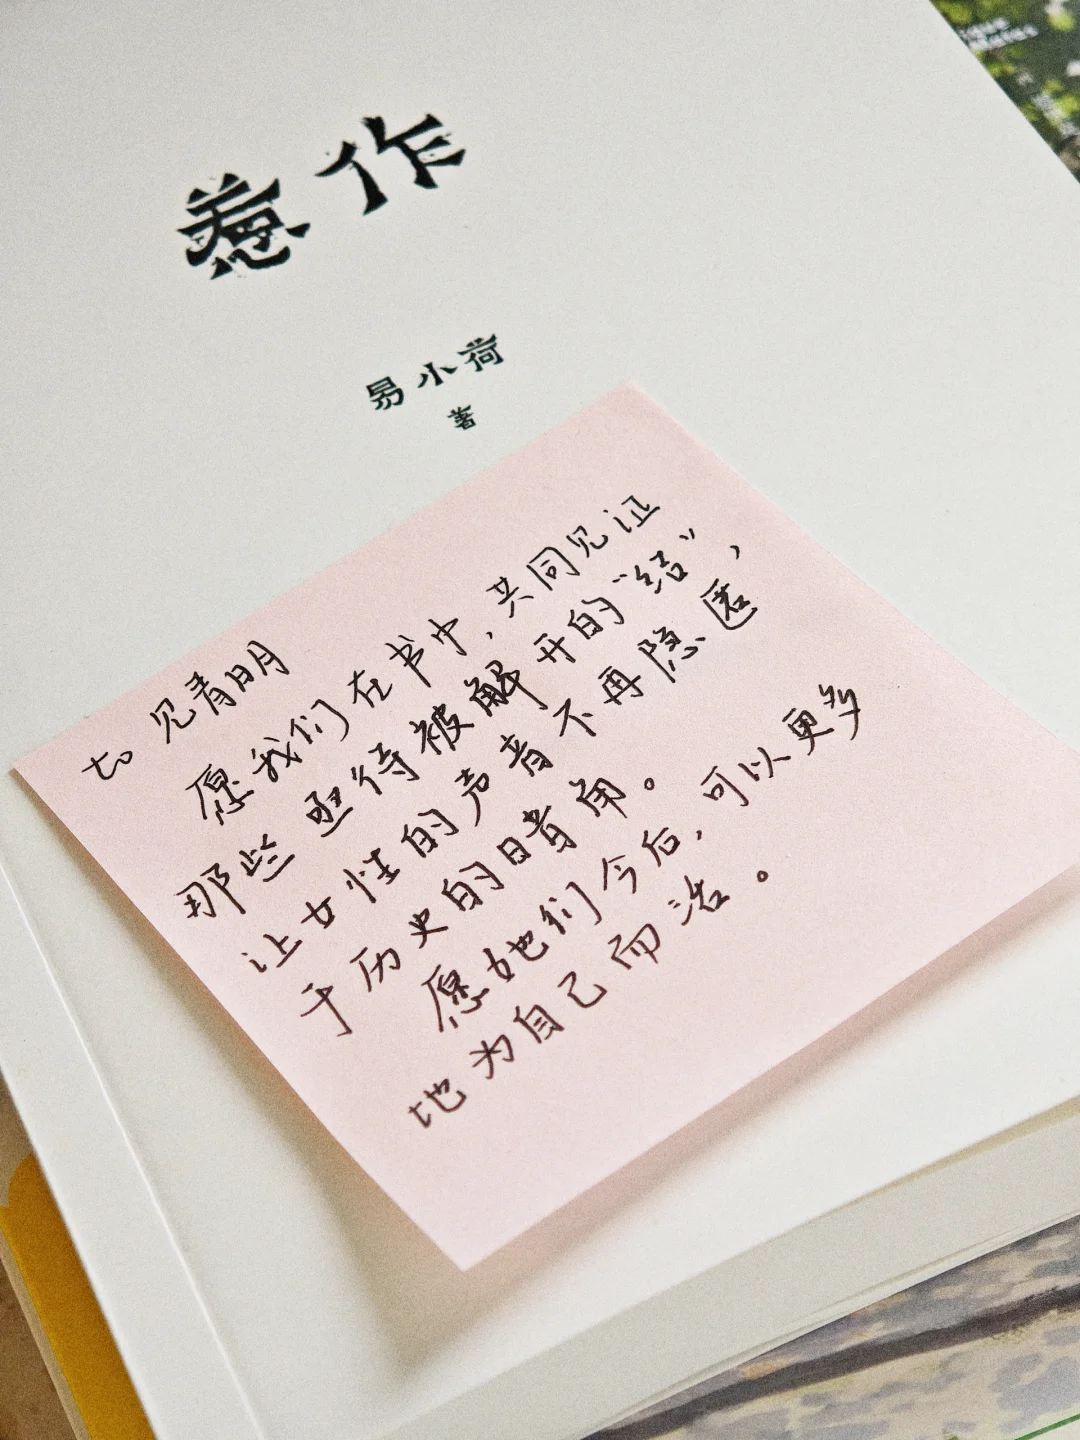 惹作
易小荷
著
to 见青明
愿我们在书中，共同见证
那些亟待被解开的“结”，
让女性的声音不再隐匿
于历史的暗角。
愿她们今后，可以更多
地为自己而活。